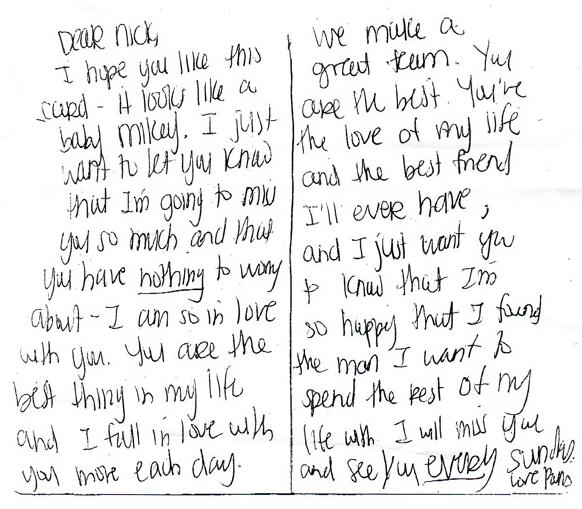 Dear Nick,
I hope you like this
card - it looks like a
baby mikey. I just
want to let you know
that I'm going to miss
you so much and that
you have nothing to worry
about - I am so in love
with you. You are the
best thing in my life
and I fall in love with
you more each day.
we make a
great team. You
are the best. You're
the love of my life
and the best friend
I'll ever have,
and I just want you
to know that I'm
so happy that I found
the man I want to
spend the rest of my
life with. I will miss you
and see you every Sunday.
Love Paris